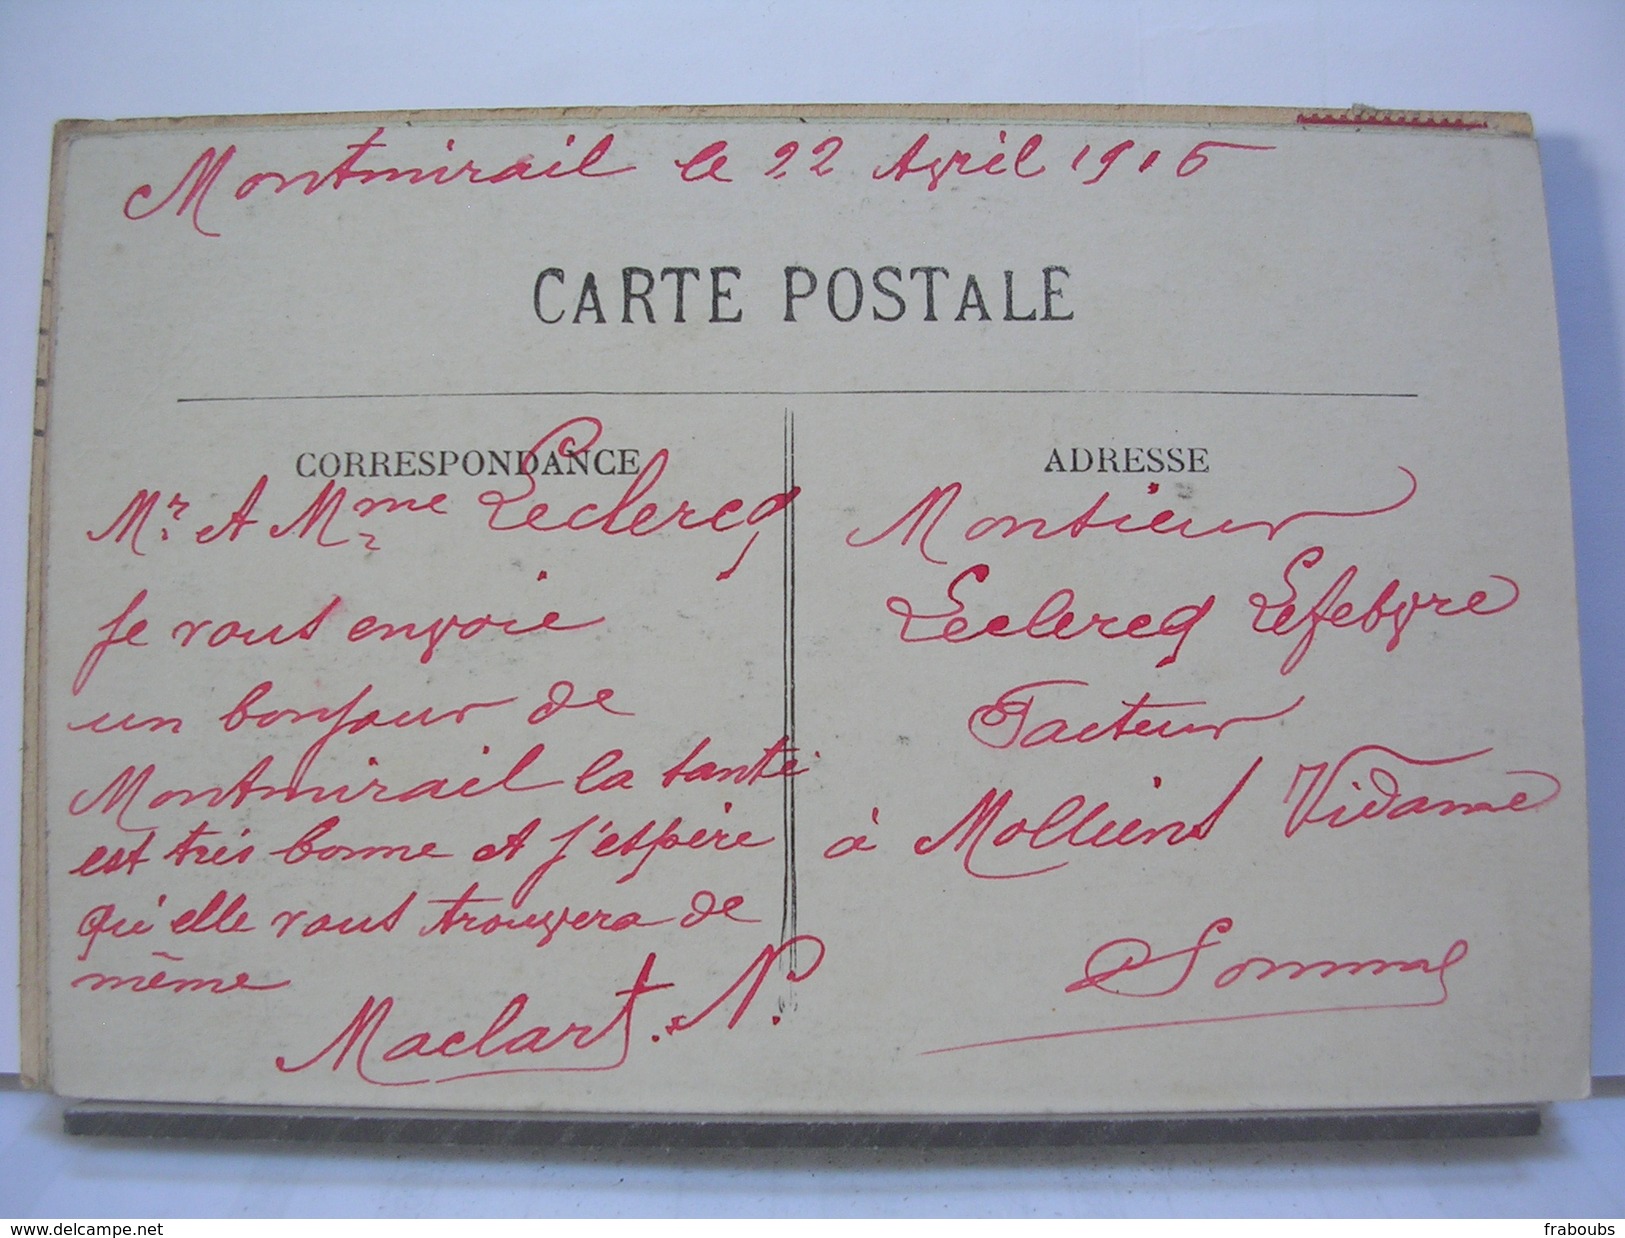 Montmirail le 22 Avril 1915
CARTE POSTALE
CORRESPONDANCE
Mr. et Mme Leclercq
Je vous envoie
un bonjour de
Montmirail la santé
est très bonne et j'espère
qu'elle vous trouvera de
même
Maclart. N.
ADRESSE
Monsieur
Leclercq Lefebvre
Facteur
à Molliens Vidame
Somme
www.delcampe.net
fraboubs